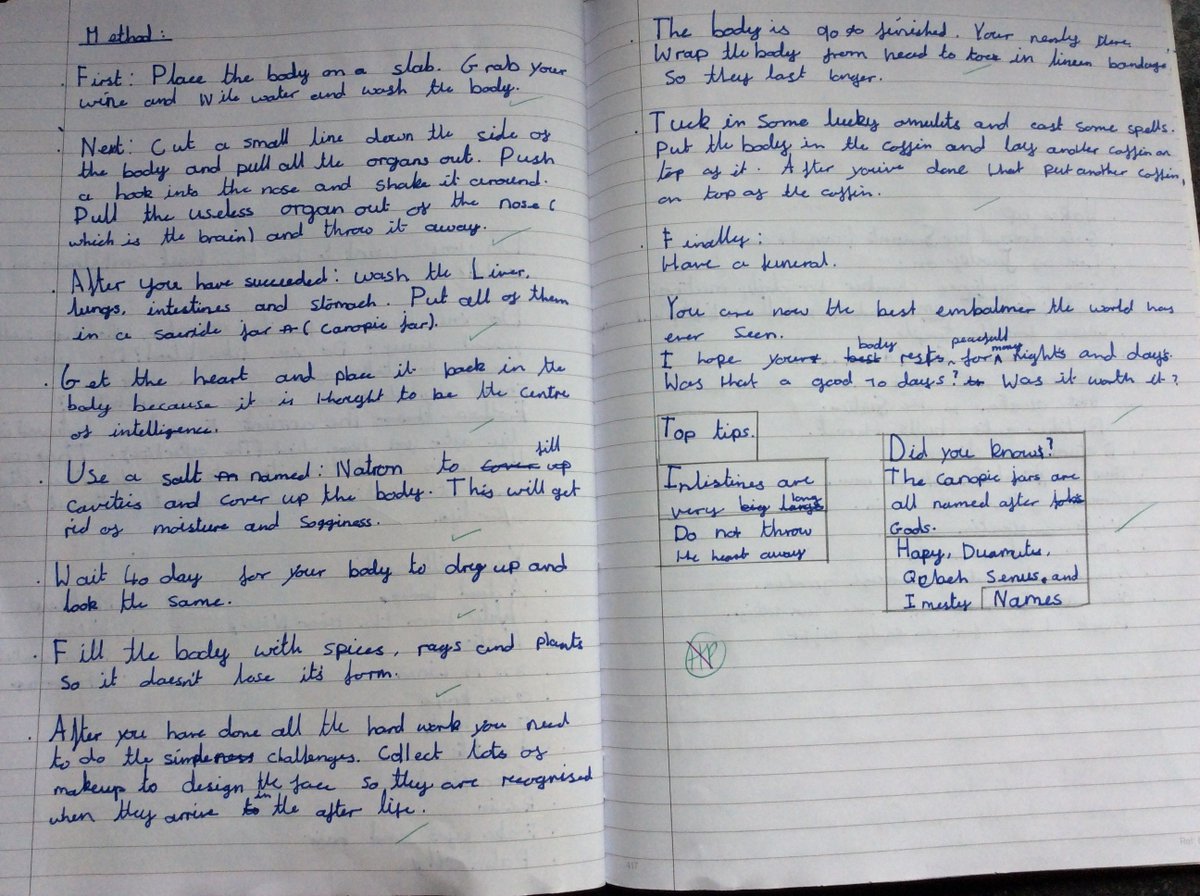 Method:
First: Place the body on a slab. Grab your
wine and Nile water and wash the body.
Next: Cut a small line down the side of
the body and pull all the organs out. Push
a hook into the nose and shake it around.
Pull the useless organ out of the nose (
which is the brain) and throw it away.
After you have succeeded: wash the Liver,
lungs, intestines and stomach. Put all of them
in a jar (canopic jar).
Get the heart and place it back in the
body because it is thought to be the centre
of intelligence.
Use a salt named: Natron to cover up fill
cavities and cover up the body. This will get
rid of moisture and sogginess.
Wait 40 day for your body to dry up and
look the same.
Fill the body with spices, rags and plants
so it doesn't lose it's form.
After you have done all the hard work you need
to do the challenges. Collect lots of
makeup to design the face so they are recognised
when they arrive to in the after life.
The body is finished. Your nearly there.
Wrap the body from head to in lineen bandage
so they last longer.
Tuck in some lucky amulets and cast some spells.
Put the body in the coffin and lay another coffin on
top of it. After you've done that put another coffin,
on top of the coffin.
Finally:
Have a funeral.
You are now the best embalmer the world has
ever seen.
I hope your best body rests peacefull for many nights and days.
Was that a good 70 days? Was it worth it?
Top tips.
Intestines are
very big long
Do not throw
the heart away
Did you knows?
The canopic jars are
all named after
Gods.
Hapy, Duamutes,
Qebeh Senus, and
Imesty Names